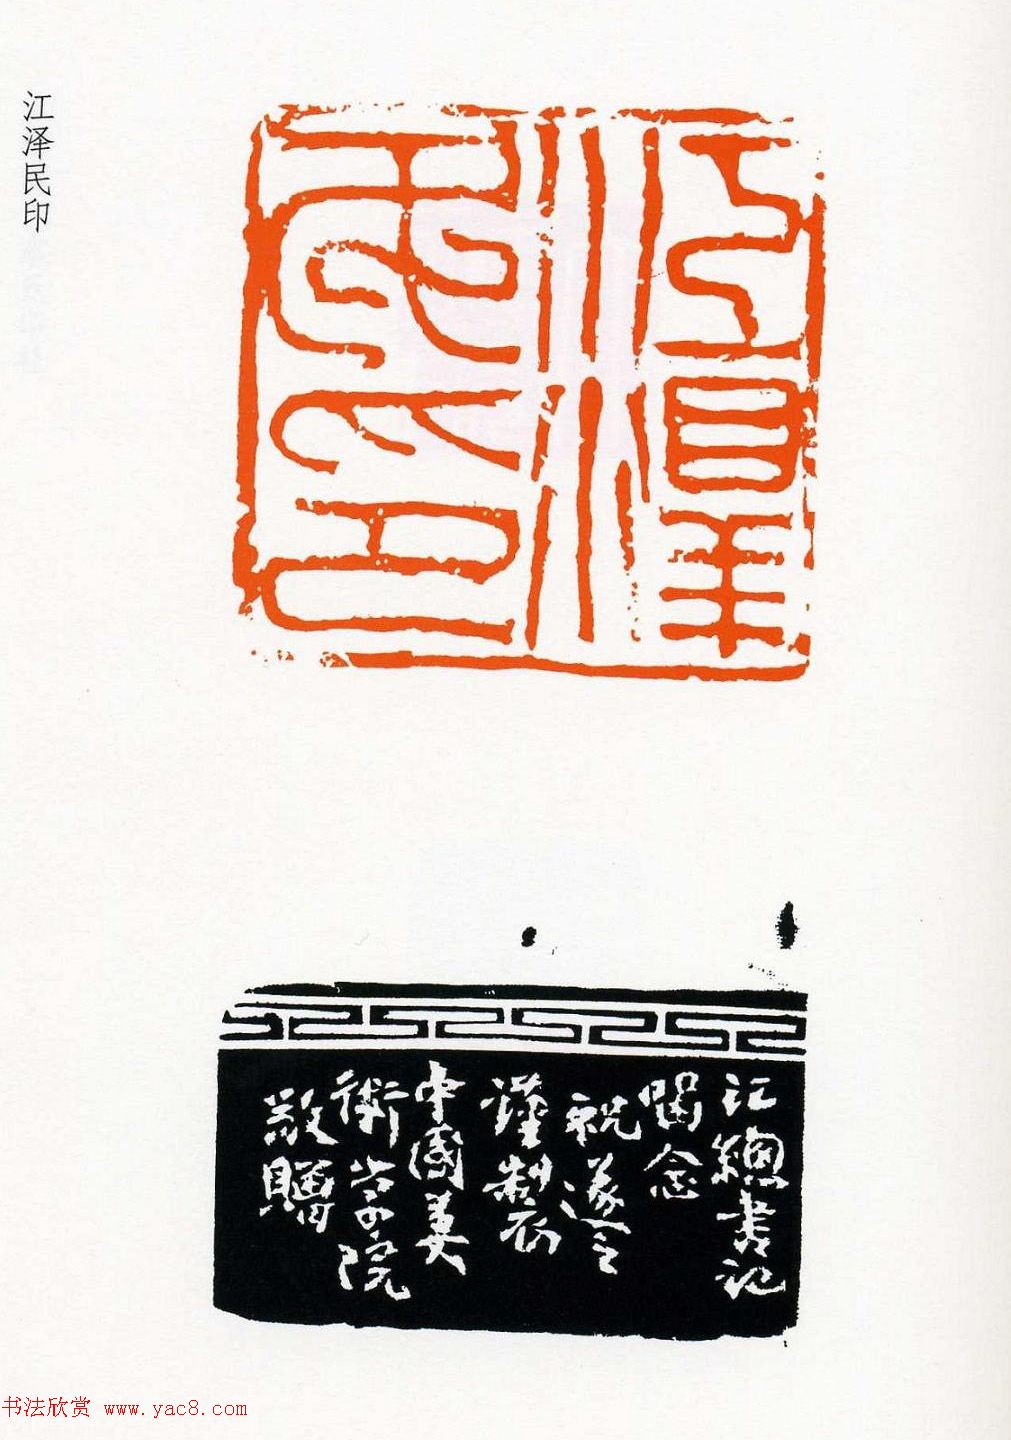 江泽民印
江澤
民印
江總書記
留念
祝遂之
謹製
中國美
術学院
敬贈
书法欣赏 www.yac8.com